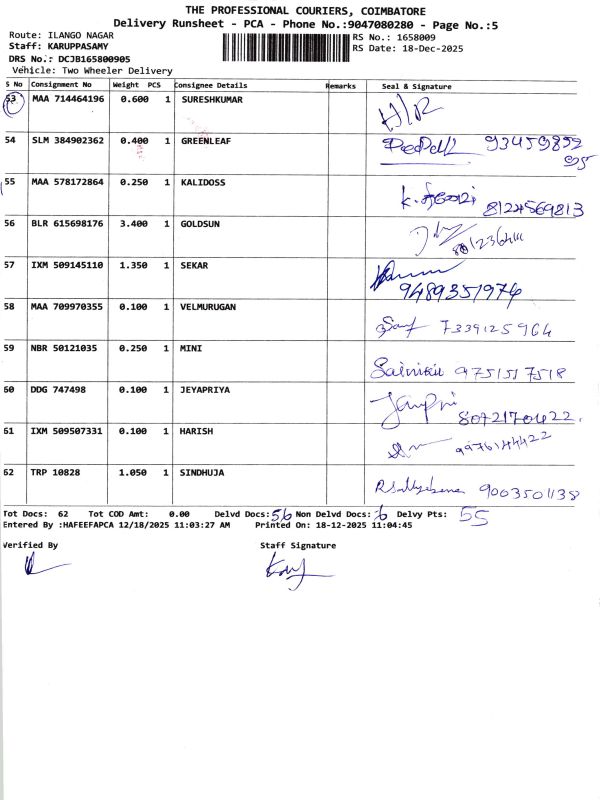 THE PROFESSIONAL COURIERS, COIMBATORE
Delivery Runsheet - PCA - Phone No.:9047080280 - Page No.:5
Route: ILANGO NAGAR
RS No.: 1658009
Staff: KARUPPASAMY
RS Date: 18-Dec-2025
DRS No.: DCJB165800905
Vehicle: Two Wheeler Delivery
S No Consignment No Weight PCS Consignee Details Remarks Seal & Signature
53 MAA 714464196 0.600 1 SURESHKUMAR H/R
54 SLM 384902362 0.400 1 GREENLEAF 93459892
95
55 MAA 578172864 0.250 1 KALIDOSS 8124569813
56 BLR 615698176 3.400 1 GOLDSUN
57 IXM 509145110 1.350 1 SEKAR
9489351974
58 MAA 709970355 0.100 1 VELMURUGAN
7339125964
59 NBR 50121035 0.250 1 MINI
9751517518
60 DDG 747498 0.100 1 JEYAPRIYA
8072170422
61 IXM 509507331 0.100 1 HARISH
9976144422
62 TRP 10828 1.050 1 SINDHUJA
9003501138
Tot Docs: 62 Tot COD Amt: 0.00 Delvd Docs: 56 Non Delvd Docs: 6 Delvy Pts: 55
Entered By :HAFEEFAPCA 12/18/2025 11:03:27 AM Printed On: 18-12-2025 11:04:45
Verified By Staff Signature